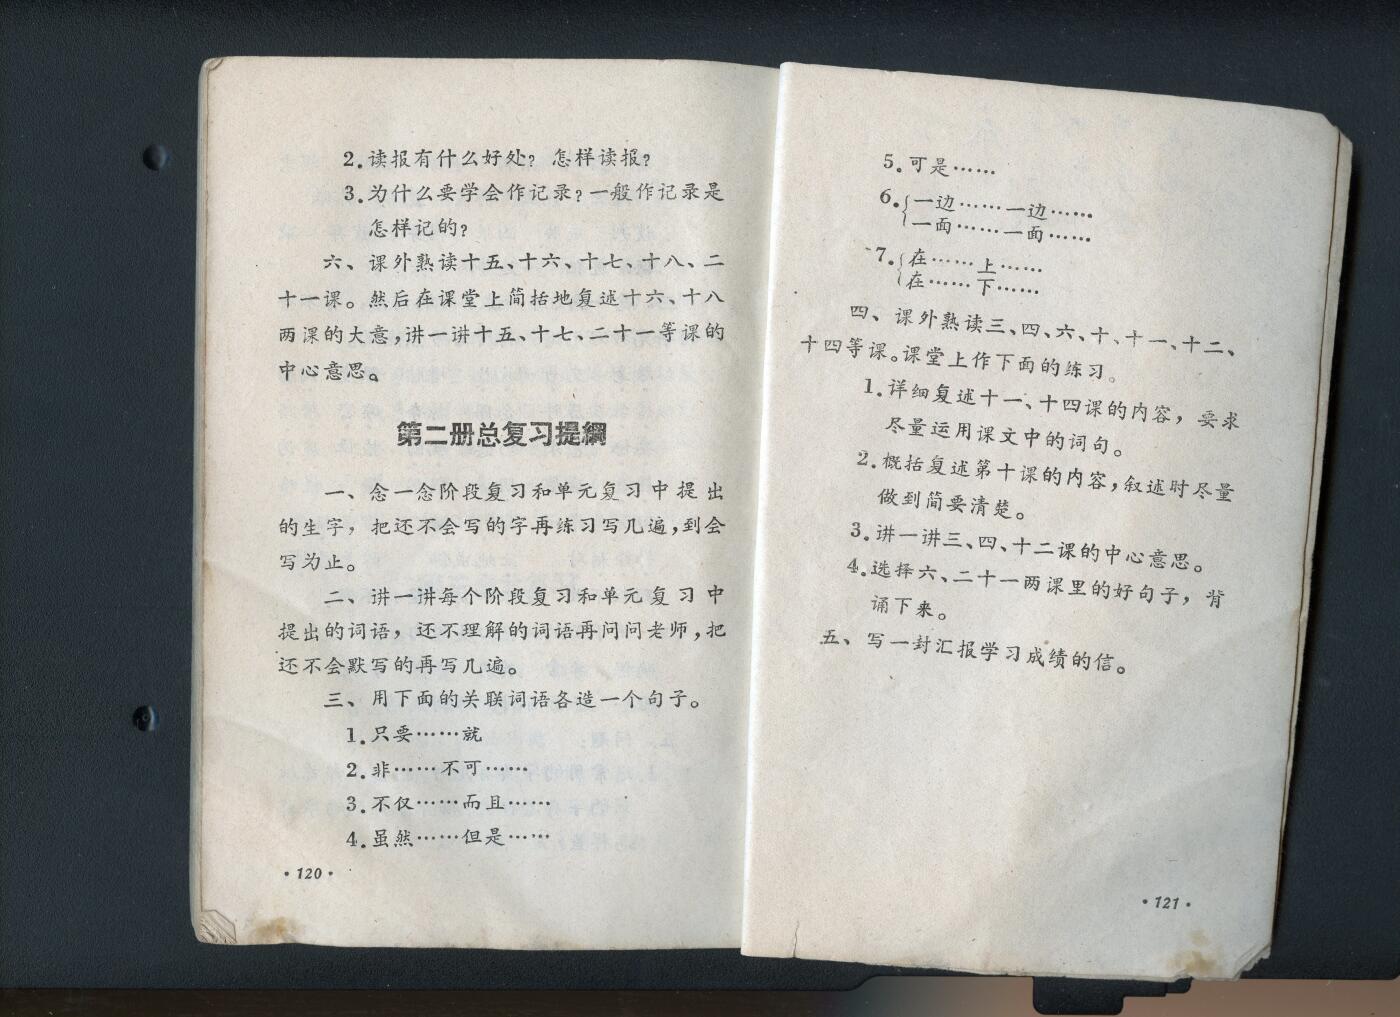 2.读报有什么好处？怎样读报？
3.为什么要学会作记录？一般作记录是
怎样记的？
六、课外熟读十五、十六、十七、十八、二
十一课。然后在课堂上简括地复述十六、十八
两课的大意，讲一讲十五、十七、二十一等课的
中心意思。
第二册总复习提纲
一、念一念阶段复习和单元复习中提出
的生字，把还不会写的字再练习写几遍，到会
写为止。
二、讲一讲每个阶段复习和单元复习中
提出的词语，还不理解的词语再问问老师，把
还不会默写的再写几遍。
三、用下面的关联词语各造一个句子。
1.只要……就
2.非……不可……
3.不仅……而且……
4.虽然……但是……
·120·
5.可是……
6.{一边……一边……
一面……一面……
7.{在……上……
在……下……
四、课外熟读三、四、六、十、十一、十二、
十四等课。课堂上作下面的练习。
1.详细复述十一、十四课的内容，要求
尽量运用课文中的词句。
2.概括复述第十课的内容，叙述时尽量
做到简要清楚。
3.讲一讲三、四、十二课的中心意思。
4.选择六、二十一两课里的好句子，背
诵下来。
五、写一封汇报学习成绩的信。
·121·